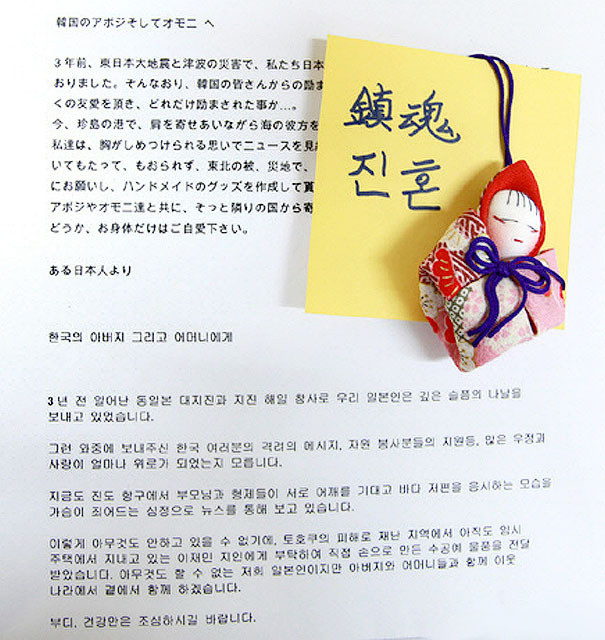 韓国のアボジそしてオモニ へ
３年前、東日本大地震と津波の災害で、私たち日本
おりました。そんなおり、韓国の皆さんからの励ま
くの友愛を頂き、どれだけ励まされた事か…。
今、珍島の港で、肩を寄せあいながら海の彼方を
私達は、胸がしめつけられる思いでニュースを見
いてもたって、もおられず、東北の被、災地で、
にお願いし、ハンドメイドのグッズを作成して貰
アボジやオモニ達と共に、そっと隣りの国から寄
どうか、お身体だけはご自愛下さい。
ある日本人より
鎮魂
진혼
한국의 아버지 그리고 어머니에게
3년 전 일어난 동일본 대지진과 지진 해일 참사로 우리 일본인은 깊은 슬픔의 나날을
보내고 있었습니다.
그런 와중에 보내주신 한국 여러분의 격려의 메시지, 자원 봉사분들의 지원등, 많은 우정과
사랑이 얼마나 위로가 되었는지 모릅니다.
지금도 진도 항구에서 부모님과 형제들이 서로 어깨를 기대고 바다 저편을 응시하는 모습을
가슴이 죄어드는 심정으로 뉴스를 통해 보고 있습니다.
이렇게 아무것도 안하고 있을 수 없기에, 토호쿠의 피해로 재난 지역에서 아직도 임시
주택에서 지내고 있는 이재민 지인에게 부탁하여 직접 손으로 만든 수공예 물품을 전달
받았습니다. 아무것도 할 수 없는 저희 일본인이지만 아버지와 어머니들과 함께 이웃
나라에서 곁에서 함께 하겠습니다.
부디, 건강만은 조심하시길 바랍니다.